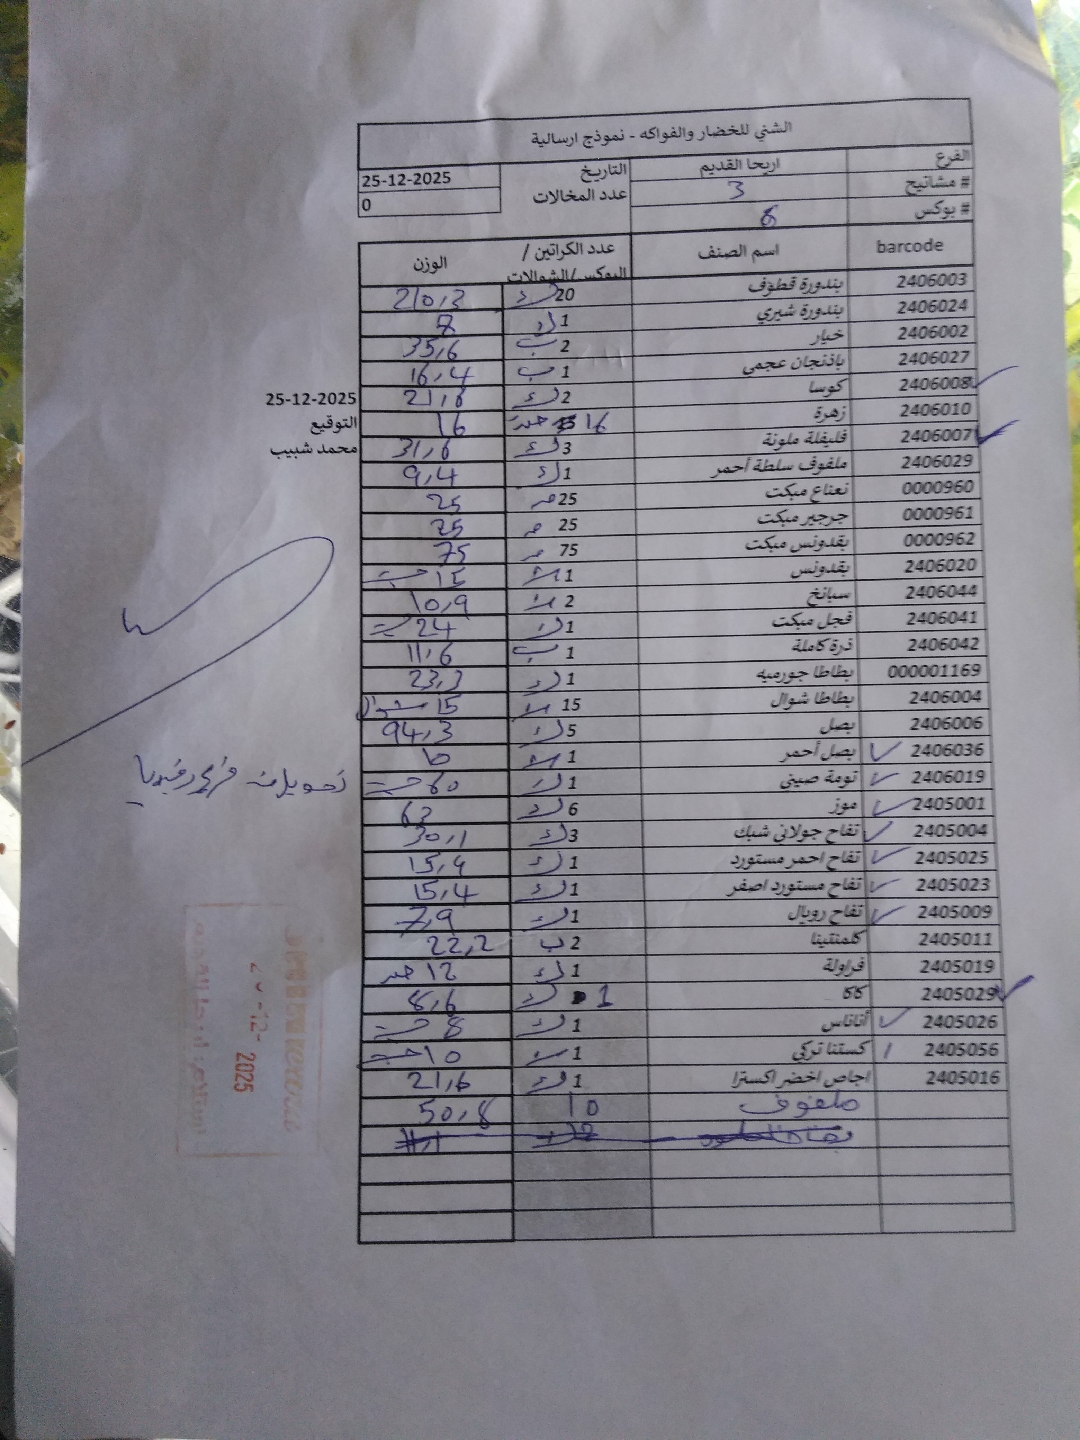 الشني للخضار والفواكه - نموذج ارسالية
الفرع اريحا القديم التاريخ 25-12-2025
# مشاتيح 3 عدد المخالات 0
# بوكس 6
barcode اسم الصنف عدد الكراتين / البوكس/الشوالات الوزن
2406003 بندورة قطوف 20 ك 210,3
2406024 بندورة شيري 1 ك 8
2406002 خيار 2 ب 35,6
2406027 باذنجان عجمي 1 ب 16,4
2406008 كوسا 2 ك 21,8
2406010 زهرة 16 حبة 16
2406007 فليفلة ملونة 3 ك 31,6
2406029 ملفوف سلطة أحمر 1 ك 9,4
0000960 نعناع مبكت 25 25
0000961 جرجير مبكت 25 25
0000962 بقدونس مبكت 75 75
2406020 بقدونس 1 15
2406044 سبانخ 2 10,9
2406041 فجل مبكت 1 ك 24
2406042 ذرة كاملة 1 ب 11,6
000001169 بطاطا جورميه 1 ك 23,3
2406004 بطاطا شوال 15 15 شوال
2406006 بصل 5 ك 94,3
2406036 بصل أحمر 1 10
2406019 تومة صيني 1 ك 60
2405001 موز 6 ك 63
2405004 تفاح جولاني شبك 3 ك 30,1
2405025 تفاح احمر مستورد 1 ك 15,4
2405023 تفاح مستورد اصفر 1 ك 15,4
2405009 تفاح رويال 1 ك 7,9
2405011 كلمنتينا 2 ب 22,2
2405019 فراولة 1 ك 12
2405029 كاكا 1 ك 8,6
2405026 أناناس 1 ك 8
2405056 كستنا تركي 1 10
2405016 اجاص اخضر اكسترا 1 ك 21,6
ملفوف 10 50,8
25-12-2025
التوقيع
محمد شبيب
2025